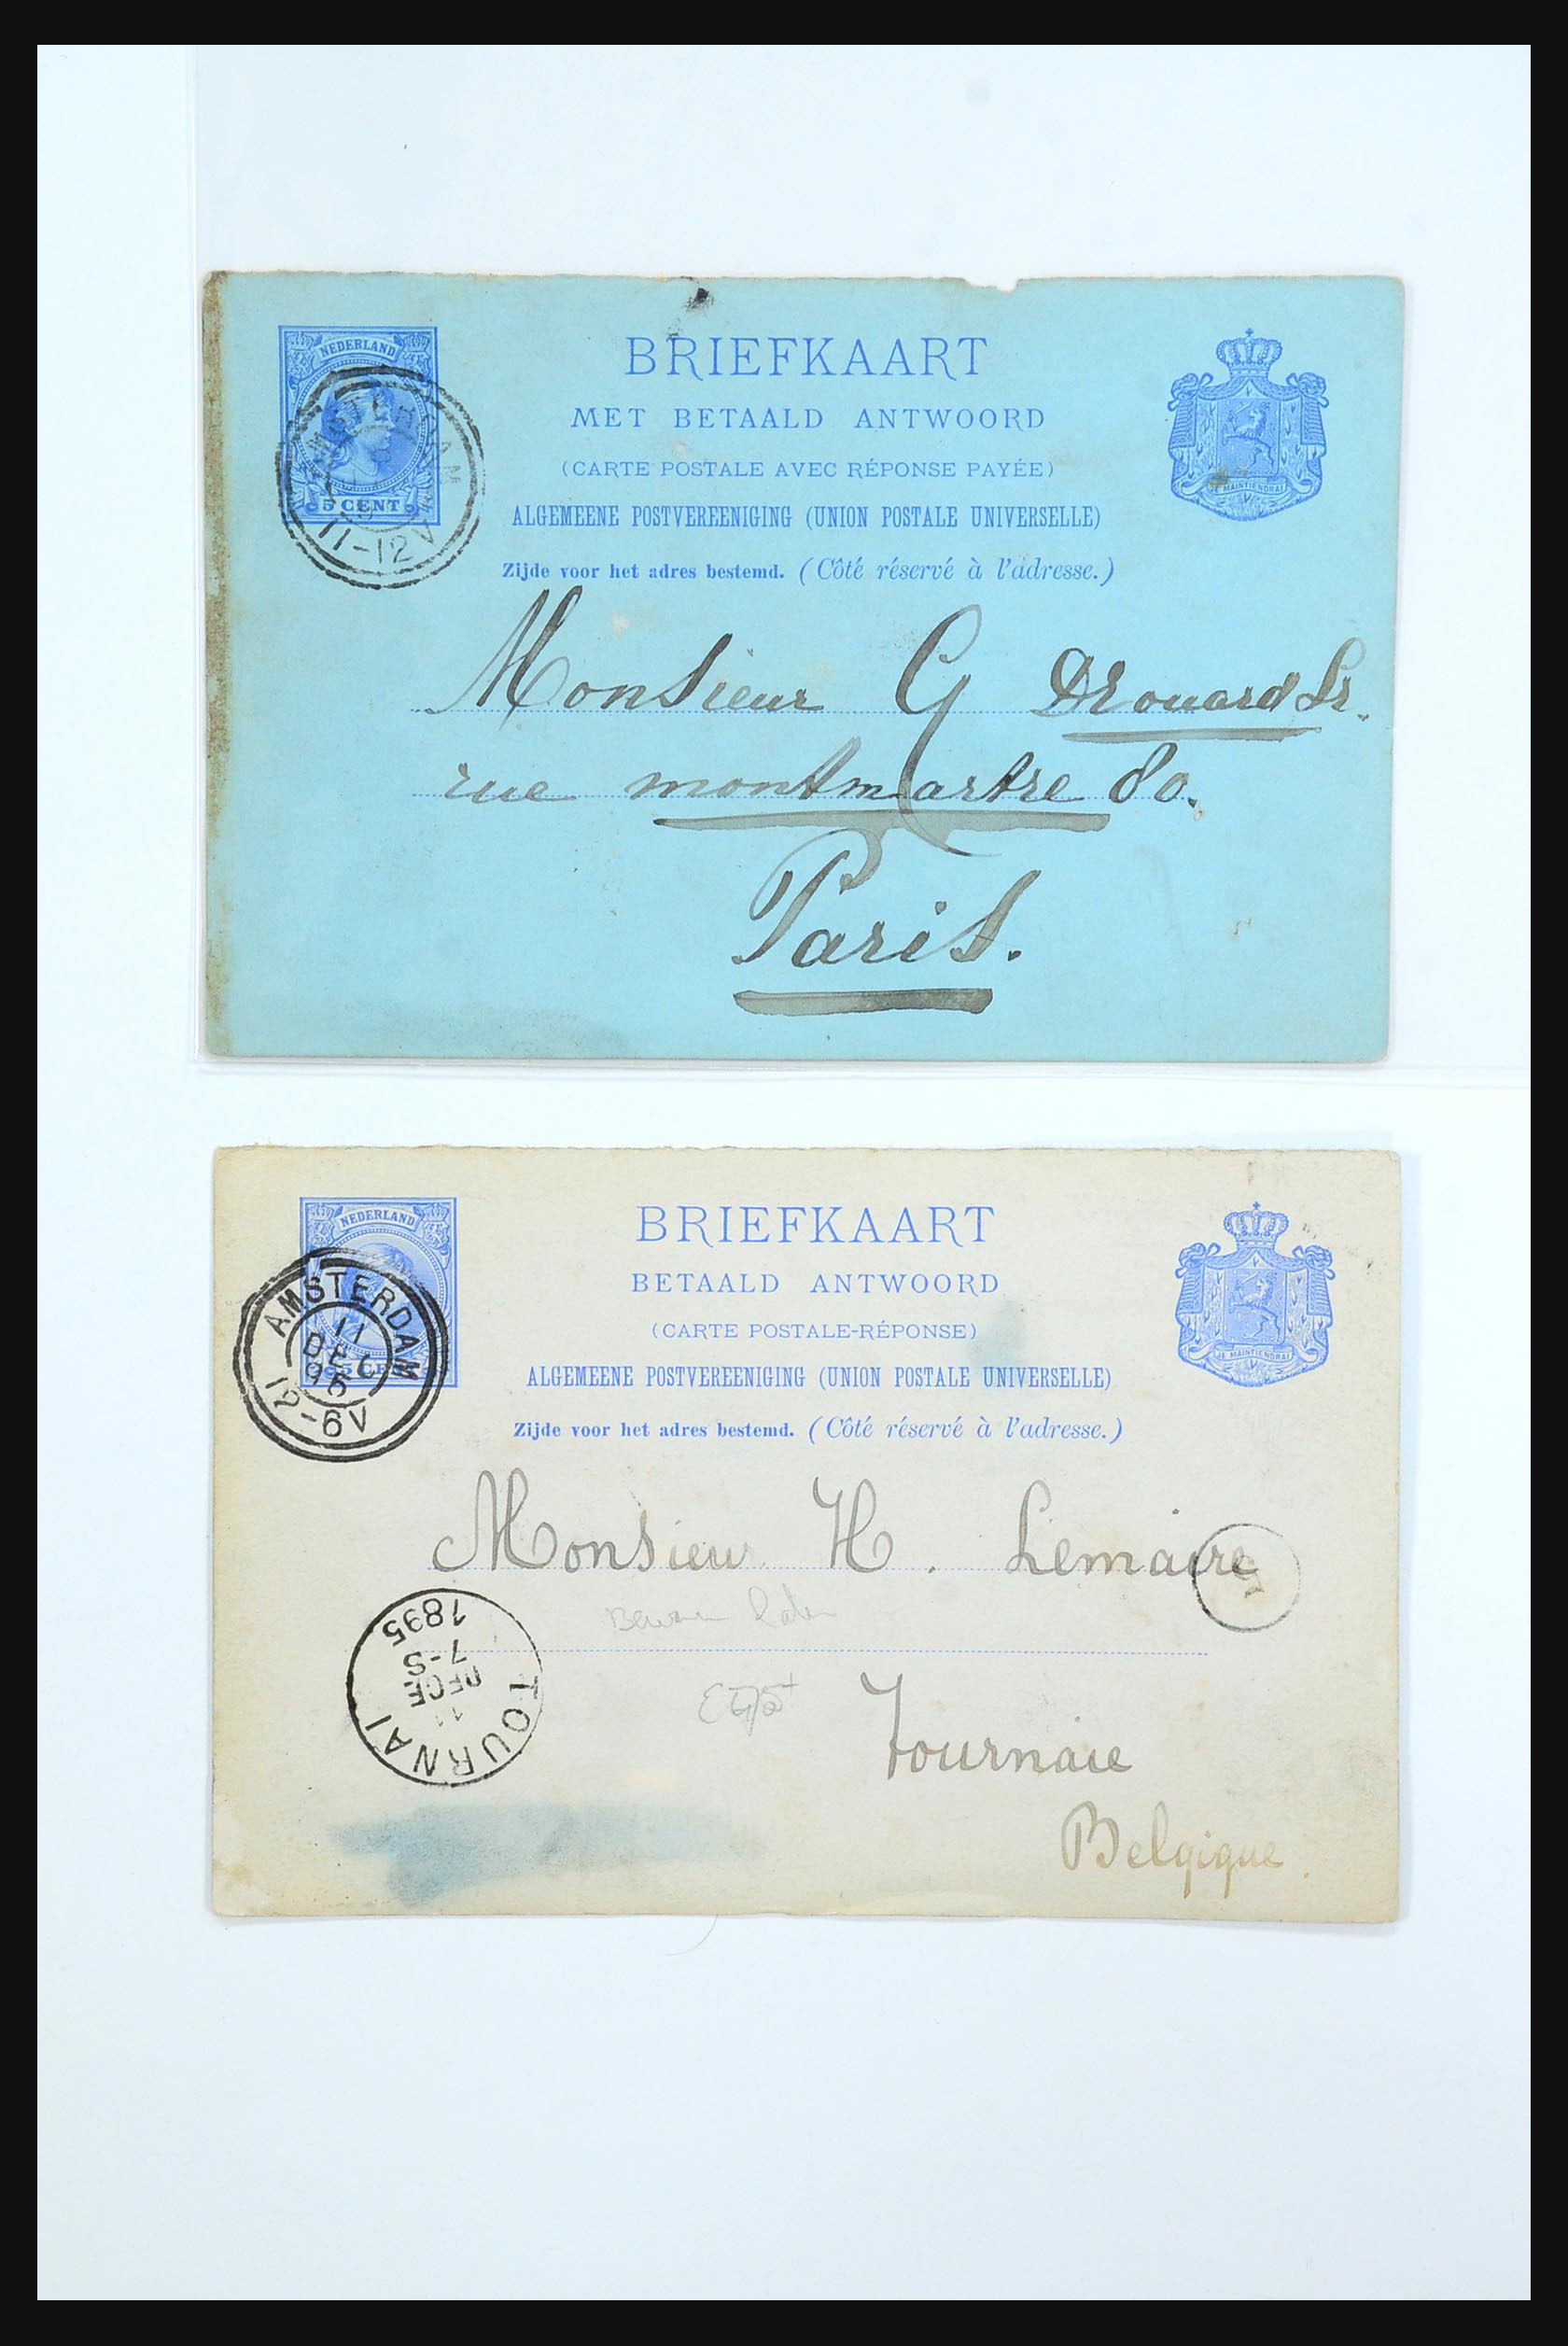 NEDERLAND
5 CENT
AMSTERDAM
11-12V
BRIEFKAART
MET BETAALD ANTWOORD
(CARTE POSTALE AVEC RÉPONSE PAYÉE)
ALGEMEENE POSTVEREENIGING (UNION POSTALE UNIVERSELLE)
Zijde voor het adres bestemd. (Côté réservé à l'adresse.)
JE MAINTIENDRAI
Monsieur G Drouard Sr.
rue montmartre 80.
Paris.
NEDERLAND
CENT
AMSTERDAM
11
DEC
95
12-6V
BRIEFKAART
BETAALD ANTWOORD
(CARTE POSTALE-RÉPONSE)
ALGEMEENE POSTVEREENIGING (UNION POSTALE UNIVERSELLE)
Zijde voor het adres bestemd. (Côté réservé à l'adresse.)
JE MAINTIENDRAI
Monsieur H. Lemaire
TOURNAI
11
DECE
7-S
1895
Tournaie
Belgique